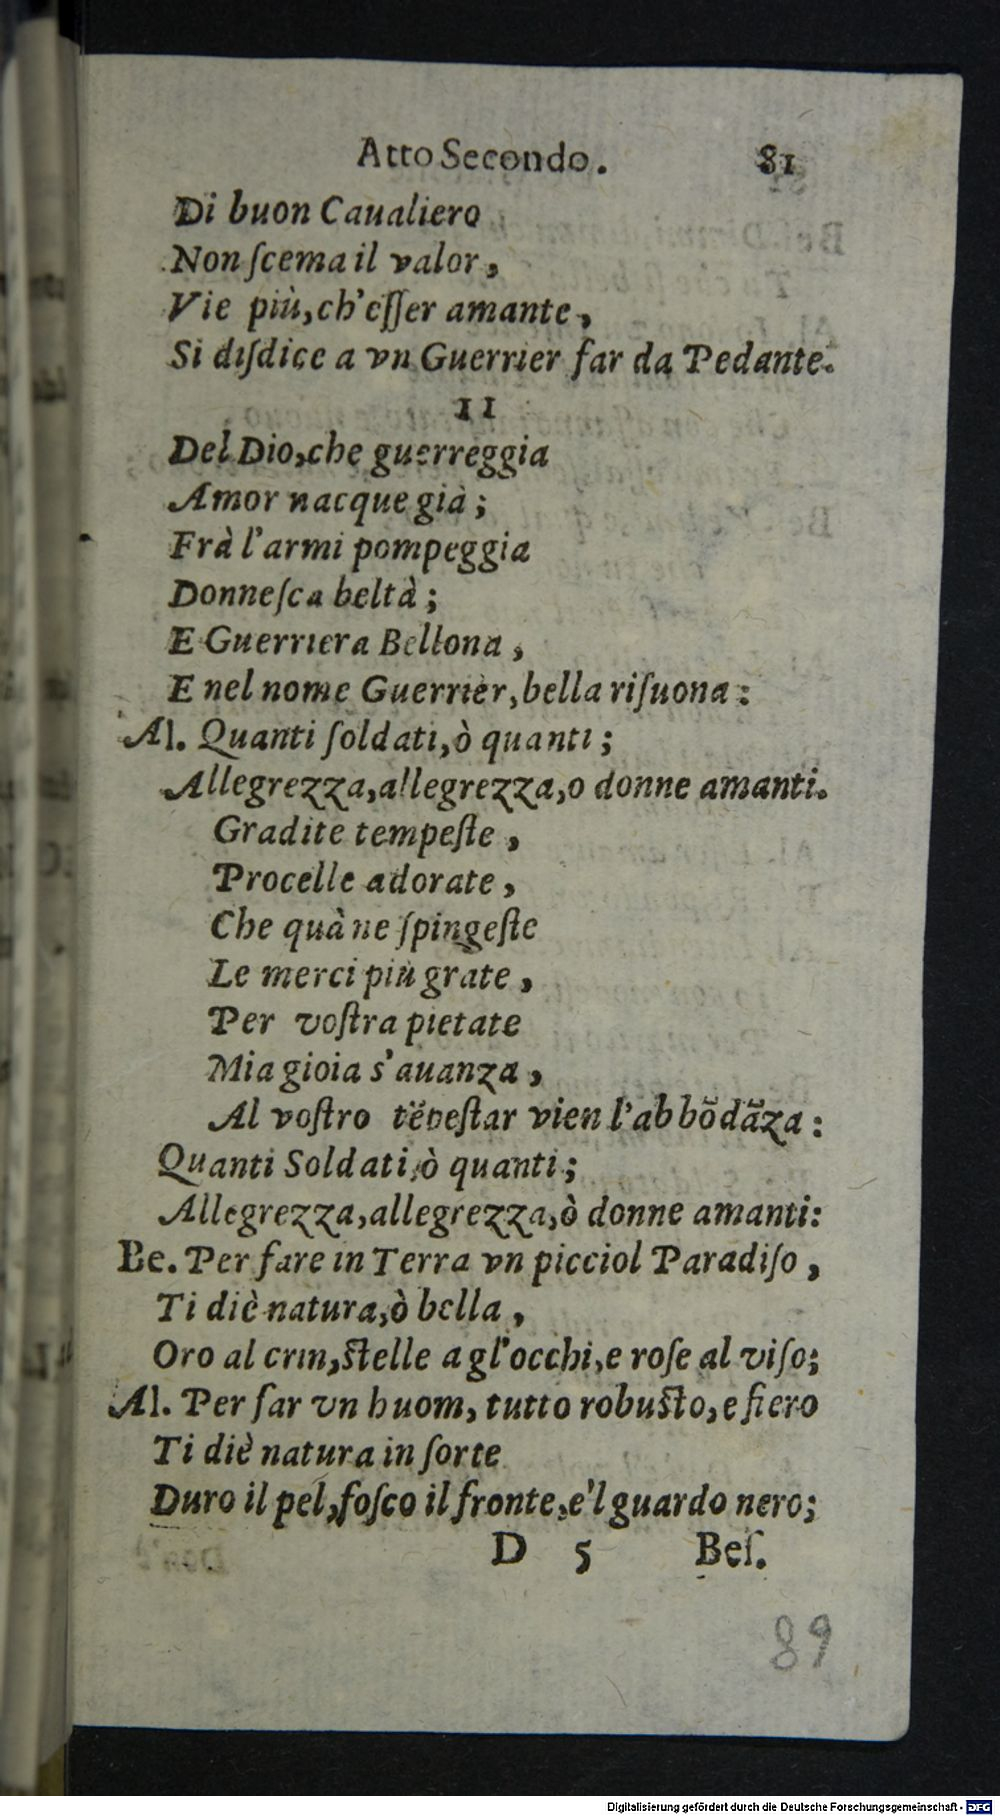 Atto Secondo. 81
Di buon Caualiero
Non ſcema il valor,
Vie più, ch'eſſer amante,
Si diſdice a vn Guerrier far da Pedante.
11
Del Dio, che guerreggia
Amor nacque già;
Frà l'armi pompeggia
Donneſca beltà;
E Guerriera Bellona,
E nel nome Guerrier, bella riſuona:
Al. Quanti ſoldati, ò quanti;
Allegrezza, allegrezza, o donne amanti.
Gradite tempeſte,
Procelle adorate,
Che quà ne ſpingeſte
Le merci più grate,
Per voſtra pietate
Mia gioia s'auanza,
Al voſtro tẽpeſtar vien l'abbõdãza:
Quanti Soldati, ò quanti;
Allegrezza, allegrezza, ò donne amanti:
Be. Per fare in Terra vn picciol Paradiſo,
Ti diè natura, ò bella,
Oro al crin, ſtelle a gl'occhi, e roſe al viſo;
Al. Per far vn huom, tutto robuſto, e fiero
Ti diè natura in ſorte
Duro il pel, foſco il fronte, e'l guardo nero;
D 5 Beſ.
89
Digitalisierung gefördert durch die Deutsche Forschungsgemeinschaft - DFG